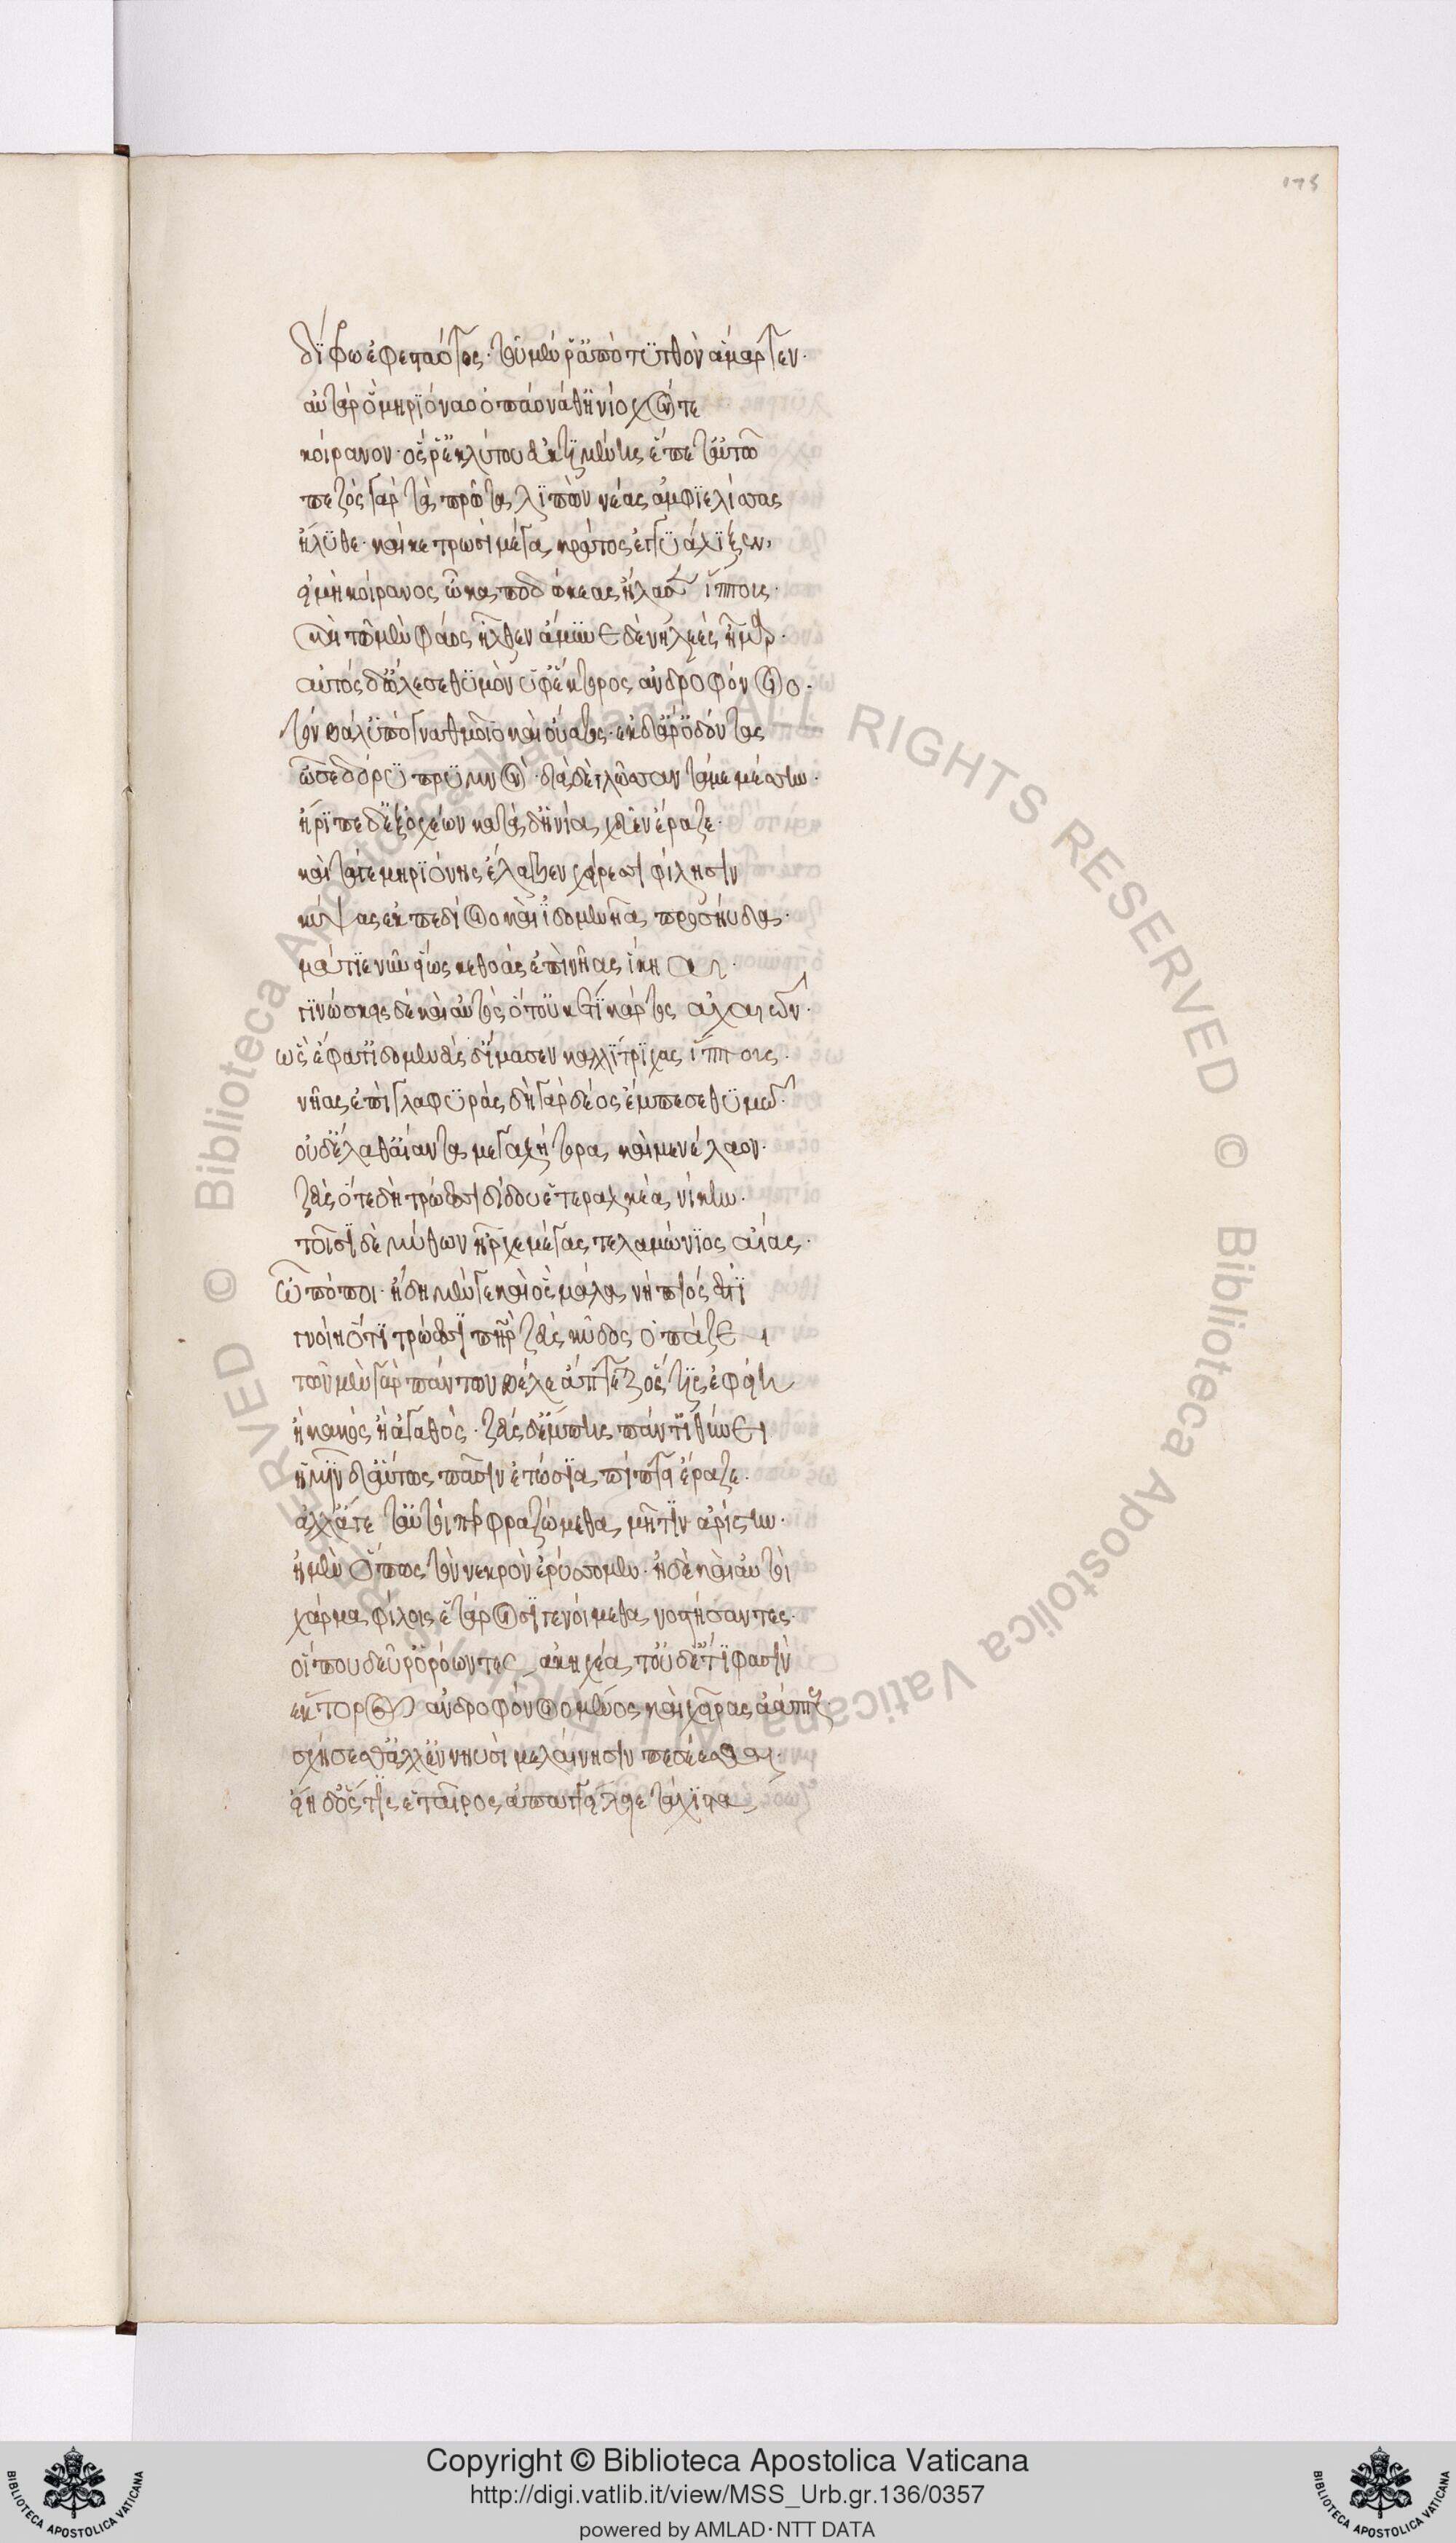 175
δίφρω ἐφεσταότος· τοῦ μέν ῥ' ἀπὸ τυτθὸν ἅμαρτεν·
αὐτὰρ ὃ μηριόναο ὀπάονά θ' ἡνίοχόν τε
κοίρανον· ὅς ῥ' ἐκ λύκτου ἐϋκτιμένης ἕπετ' αὐτῶ
πεζὸς γὰρ τὰ πρῶτα λιπὼν νέας ἀμφιελίσσας
ἤλυθε· καί κε τρωσὶ μέγα κράτος ἐγγυάλιξεν,
εἰ μὴ κοίρανος ὦκα ποδώκεας ἤλασεν ἵππους·
καὶ τῶ μὲν φάος ἦλθεν ἄμυνε δὲ νηλεὲς ἦμαρ·
αὐτὸς δ' ὤλεσε θυμὸν ὑφ' ἕκτορος ἀνδροφόνοιο·
τὸν βάλ' ὑπὸ γναθμοῖο καὶ οὔατος· ἐκ δ' ἄρ' ὀδόντας
ὦσε δόρυ πρυμνόν· διὰ δὲ γλῶσσαν τάμε μέσσην·
ἤριπε δ' ἐξ ὀχέων κατὰ δ' ἡνία χεῦεν ἔραζε·
καὶ τά γε μηριόνης ἔλαβεν χείρεσσι φίλησιν
κύψας ἐκ πεδίοιο καὶ ἰδομενῆα προσηύδα·
μάστιε νῦν εἵως κε θοὰς ἐπὶ νῆας ἵκηαι·
γινώσκεις δὲ καὶ αὐτὸς ὅτ' οὐκέτι κάρτος ἀχαιῶν·
ὣς ἔφατ' ἰδομενεὺς δ' ἵμασεν καλλίτριχας ἵππους·
νῆας ἐπὶ γλαφυράς δὴ γὰρ δέος ἔμπεσε θυμῶ·
οὐδ' ἔλαθ' αἴαντα μεγαλήτορα καὶ μενέλαον·
ζεὺς ὅτε δὴ τρώεσσι δίδου ἑτεραλκέα νίκην·
τοῖσι δὲ μύθων ἦρχε μέγας τελαμώνιος αἴας·
ὢ πόποι· ἤδη μέν γε καὶ ὃς μάλα νήπιός ἐστι
γνοίη ὅτι τρώεσσι πατὴρ ζεὺς κῦδος ὀπάζει
τῶν μὲν γὰρ πάντων βέλε' ἅπτεται ὅς τις ἐφείη
ἢ κακὸς ἢ ἀγαθός· ζεὺς δ' ἔμπης πάντ' ἰθύνει
ἡμῖν δ' αὔτως πᾶσιν ἐτώσια πίπτει ἔραζε·
ἀλλ' ἄγετ' αὐτοί περ φραζώμεθα μῆτιν ἀρίστην·
ἠμὲν ὅπως τὸν νεκρὸν ἐρύσσομεν· ἠδὲ καὶ αὐτοὶ
χάρμα φίλοις ἑτάροισι γενώμεθα νοστήσαντες·
οἵ που δεῦρ' ὁρόωντες ἀκηχέατ' οὐδ' ἔτι φασὶν
ἕκτορος ἀνδροφόνοιο μένος καὶ χεῖρας ἀάπτους
σχήσεσθ' ἀλλ' ἐν νηυσὶ μελαίνησιν πεσέεσθαι·
εἴη δ' ὅς τις ἑταῖρος ἀπαγγείλειε τάχιστα
Copyright © Biblioteca Apostolica Vaticana
http://digi.vatlib.it/view/MSS_Urb.gr.136/0357
powered by AMLAD·NTT DATA